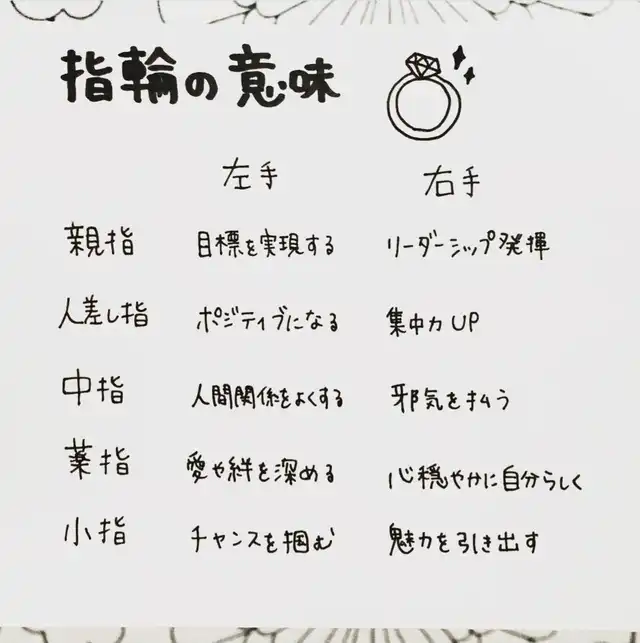 指輪の意味
左手 右手
親指 目標を実現する リーダーシップ発揮
人差し指 ポジティブになる 集中力UP
中指 人間関係をよくする 邪気を払う
薬指 愛や絆を深める 心穏やかに自分らしく
小指 チャンスを掴む 魅力を引き出す